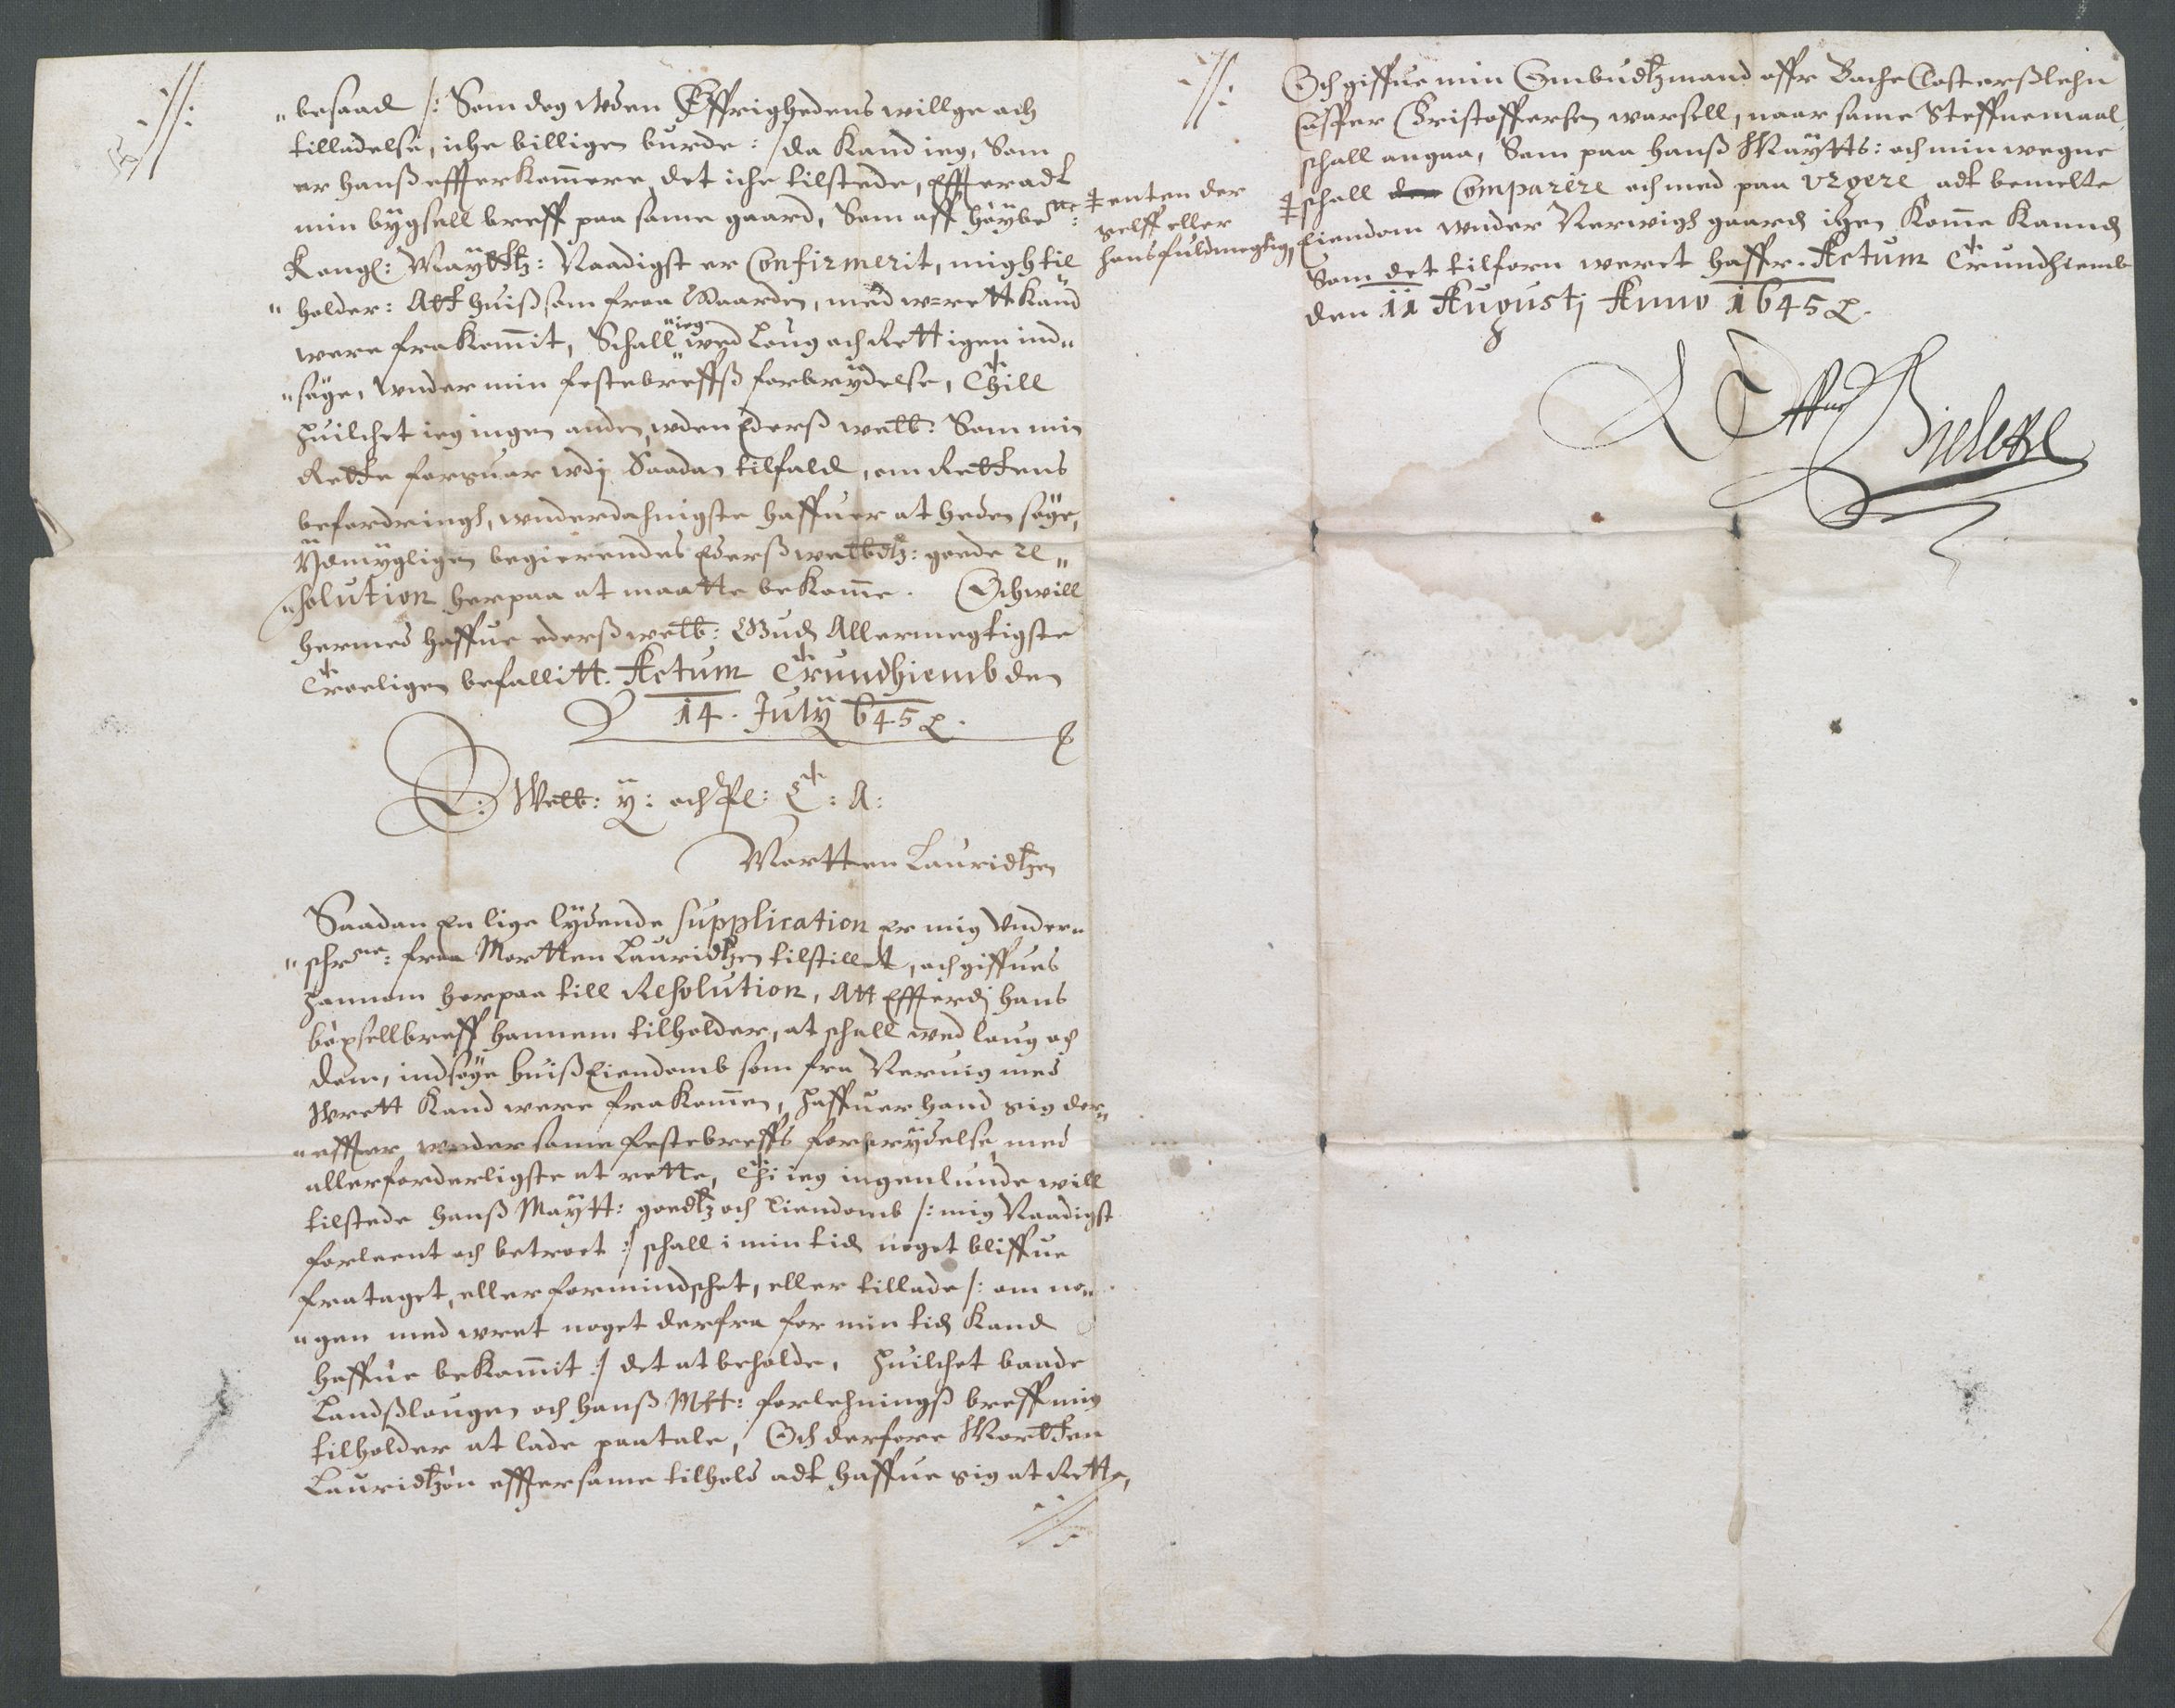 "besaad /: Som dog Uden Öffrighedens willge och
tilladelse, iche billigen burde: / da Kand ieg, Som
er hanß effterkommere det iche tilstede, Effteradt
min bygsell breff paa samme gaard, Som aff höybene:
Kongl: Maÿttz: Naadigst er Confirmerit, migh til
"holder: Att huiß som fraa Gaarden, med w=rett Kand
were frakommit, Schall "ieg" wed Loug och Rett igen ind"
"söge, Under min festebreffß forbrydelse, Thill
huilchet ieg ingen anden, uden Ederß welb: Som min
Rette forsuar udj Saadan tilfald, om Rettens
befordringh, underdahnigste haffuer at heden söge,
Ÿdmygligen begierendes Ederß welbdtz: goede re"
"solution herpaa at maatte bekomme. Och will
hermed haffue ederß welb: Gud Allermegtigste
Troeligen befallitt. Actum Trundhiemb den
14. Julÿ 645
E: Welb: ÿ: och Pl: T: A:
Mortten Lauridtzen
Saadan En lige lydende Supplication er mig Under"
"schrne: fraa Mortten Lauridtzen tilstillet, och giffues
hannom herpaa till Resolution, Att Effterdj hans
böxsellbreff hannem tilholder, at schall wed loug och
dom, indsöge huiß Eiendomb som fra Neruig med
Wrett Kand were frakommen, haffuer hand sig der"
"effter under samme festebreffs forbrydelse, med
allerforderligste at rette, Thi ieg ingenlunde will
tilstede hanß Maÿtt: goedtz och Eiendomb /: mig Naadigst
forleent och betroet :/ schall i min tid noget bliffue
frataget, eller formindschet, eller tillade /: om no"
"gen med wret noget derfra for min tid Kand
haffue bekommit :/ det at beholde, huilchet baade
Landßlougen och hanß Mtt: forlehningß breff mig
tilholder at lade paatale, Och derfore Mortten
Lauridtzön effter samme tilhold adt haffue sig at Rette,
Och giffue min Ombudtzmand offr Bache Closterßlehn
Casper Cristoffersen warsell, naar samme Steffnemaal
schall angaa, Som paa hanß Maÿtts: och min wegne
‡ enten der
selff eller
hans fuldmegtig,
‡ schall Comparere och med paa urgere adt bemelte
Eiendom under Nerwigh gaard igen Komme Kannd
Som det tilforn weret haffr. Actum Trundhiemb
den 11 Augustj Anno 1645
Oluff Bielche